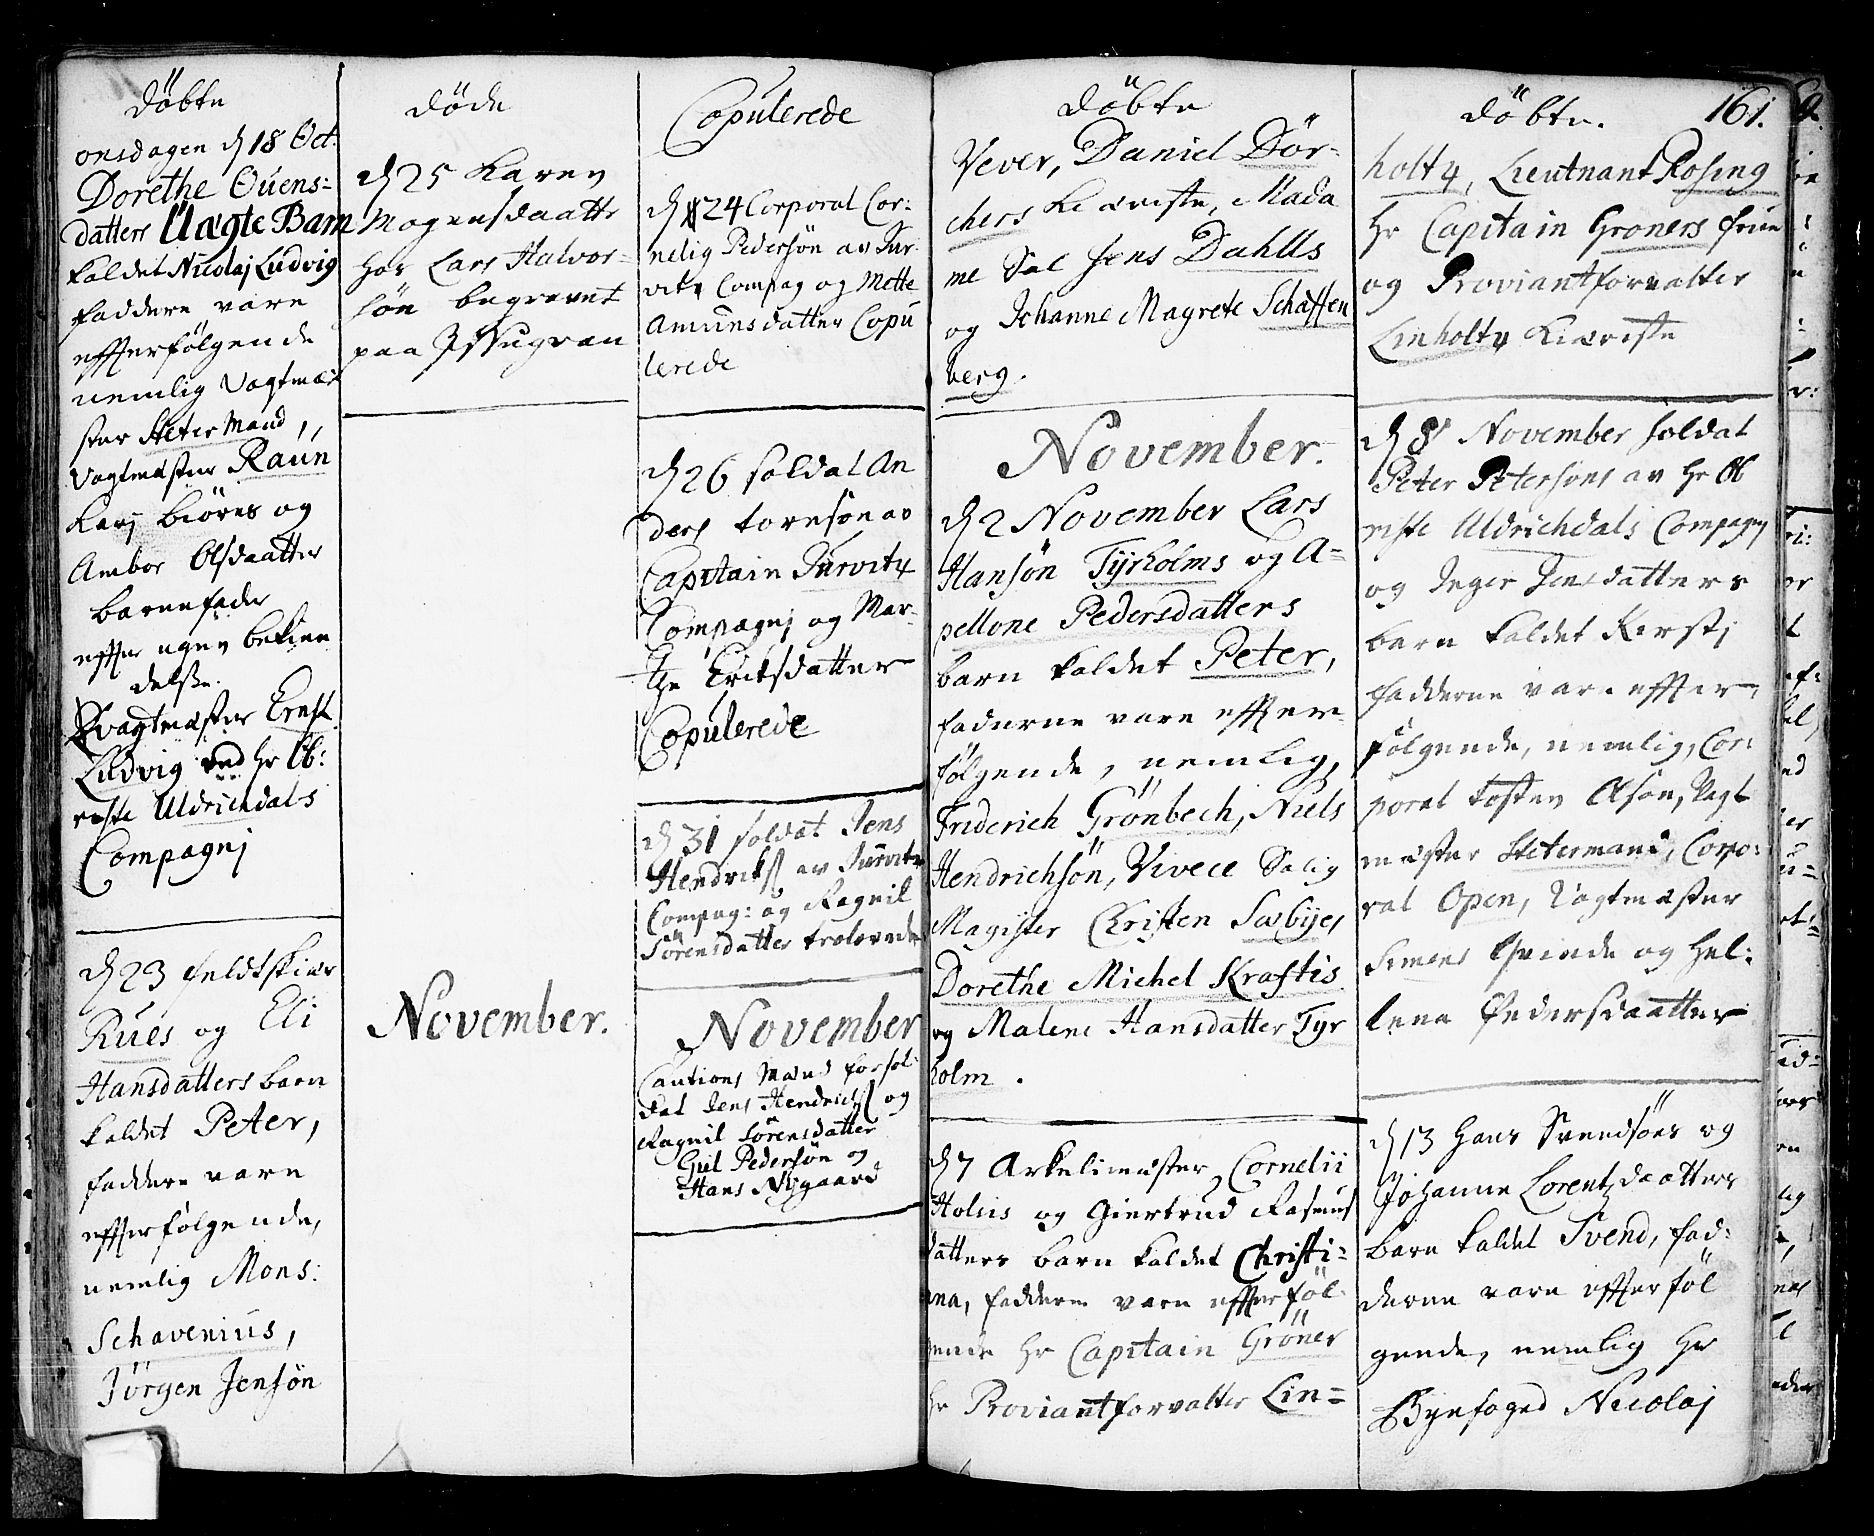 Döbte
onsdagen d 18 Oct:
Dorethe Ouens=
datters Uægte Barn
kaldet Nicolaj Ludvig
faddere vare
effterfölgende
nemlig Vagtmæ
ster Steter Mand,
Vagtmester Raun
Karj biörns og
Ambor Olsdaatter
barnefader
effter egen bekien
delse.
Qvagtmester Ernst
Ludvig ved hr Ob:
reste Uldrichdals
Compagnj
d 23 feldtskiær
Rues og Eli
Hansdatters barn
kaldet Peter,
faddere vare
effterfölgende,
nemlig Mons:
Schavenius,
Jörgen Jensön
Döde
d 25 Karen
Mogensdaatter
hos Lars Halvor=
sön begravet
paa
November.
Copulerede
d 24 Corporal Cor:
nelig Pedersön av Jur:
vitz Compag og Mette
Amunsdatter Copu
lerede
d 26 soldat An
ders tornsön av
Capitain Jurvitz
Compagnj og Mar=
the Eriksdatter
Copulerede
d 31 soldat Jens
Hendriks av Jurvitz
Compag: og Ragnil
Sörensdatter trolovede
November
Cautions Mænd for sol:
dat Jens Hendrichs og
Ragnil Sörensdatter
Gul Pedersön og
Hans Nygaard
Döbte
Vever, Daniel Dör=
chers Kiæriste, Mada
me Sal Jens Dahlls
og Johanne Magrete Schaffen
berg.
November.
d 2 November Lars
Hansön Tyrholms og A=
pellone Pedersdatters
barn kaldet Peter,
fadderne vare effter
fölgende, nemlig,
Friderich Grönbech, Niels
Hendrichsön, Vivece Salig
Magister Christen Sæbye,
Dorethe Michel Kraftis
og Malene Hansdatter Tyr
holm.
d 7 Arkelimester Cornelii
Holius og Giertrud Rasmus
datters barn kaldet Christi=
ana, faddere vare effterföl=
gende hr Capitain Gröner
hr Proviantforvalter Lin=
Döbte. 161.
holtz, Lieutnant Rosing
hr Capitain Groners frue
og Proviantforvalter
Linholtz Kiæriste
d 8 November soldat
Peter Petersöns av hr Ob
riste Uldrichdals Compagnj
og Inger Jensdatters
barn kaldet Kirstj
fadderne vare effter
fölgende, nemlig, Cor:
poral tosten Olsön, Vagt
mester Stetermand, Corpo:
ral Open, Vagtmester
Simens qvinde og Hel:
lena Pedersdaatter
d 13 Hans Svendsöns og
Johanne Lorentzdaatters
barn kaldet Svend, fad:
derne vare effterföl
gende, nemlig hr
Byefoged Nicolaj